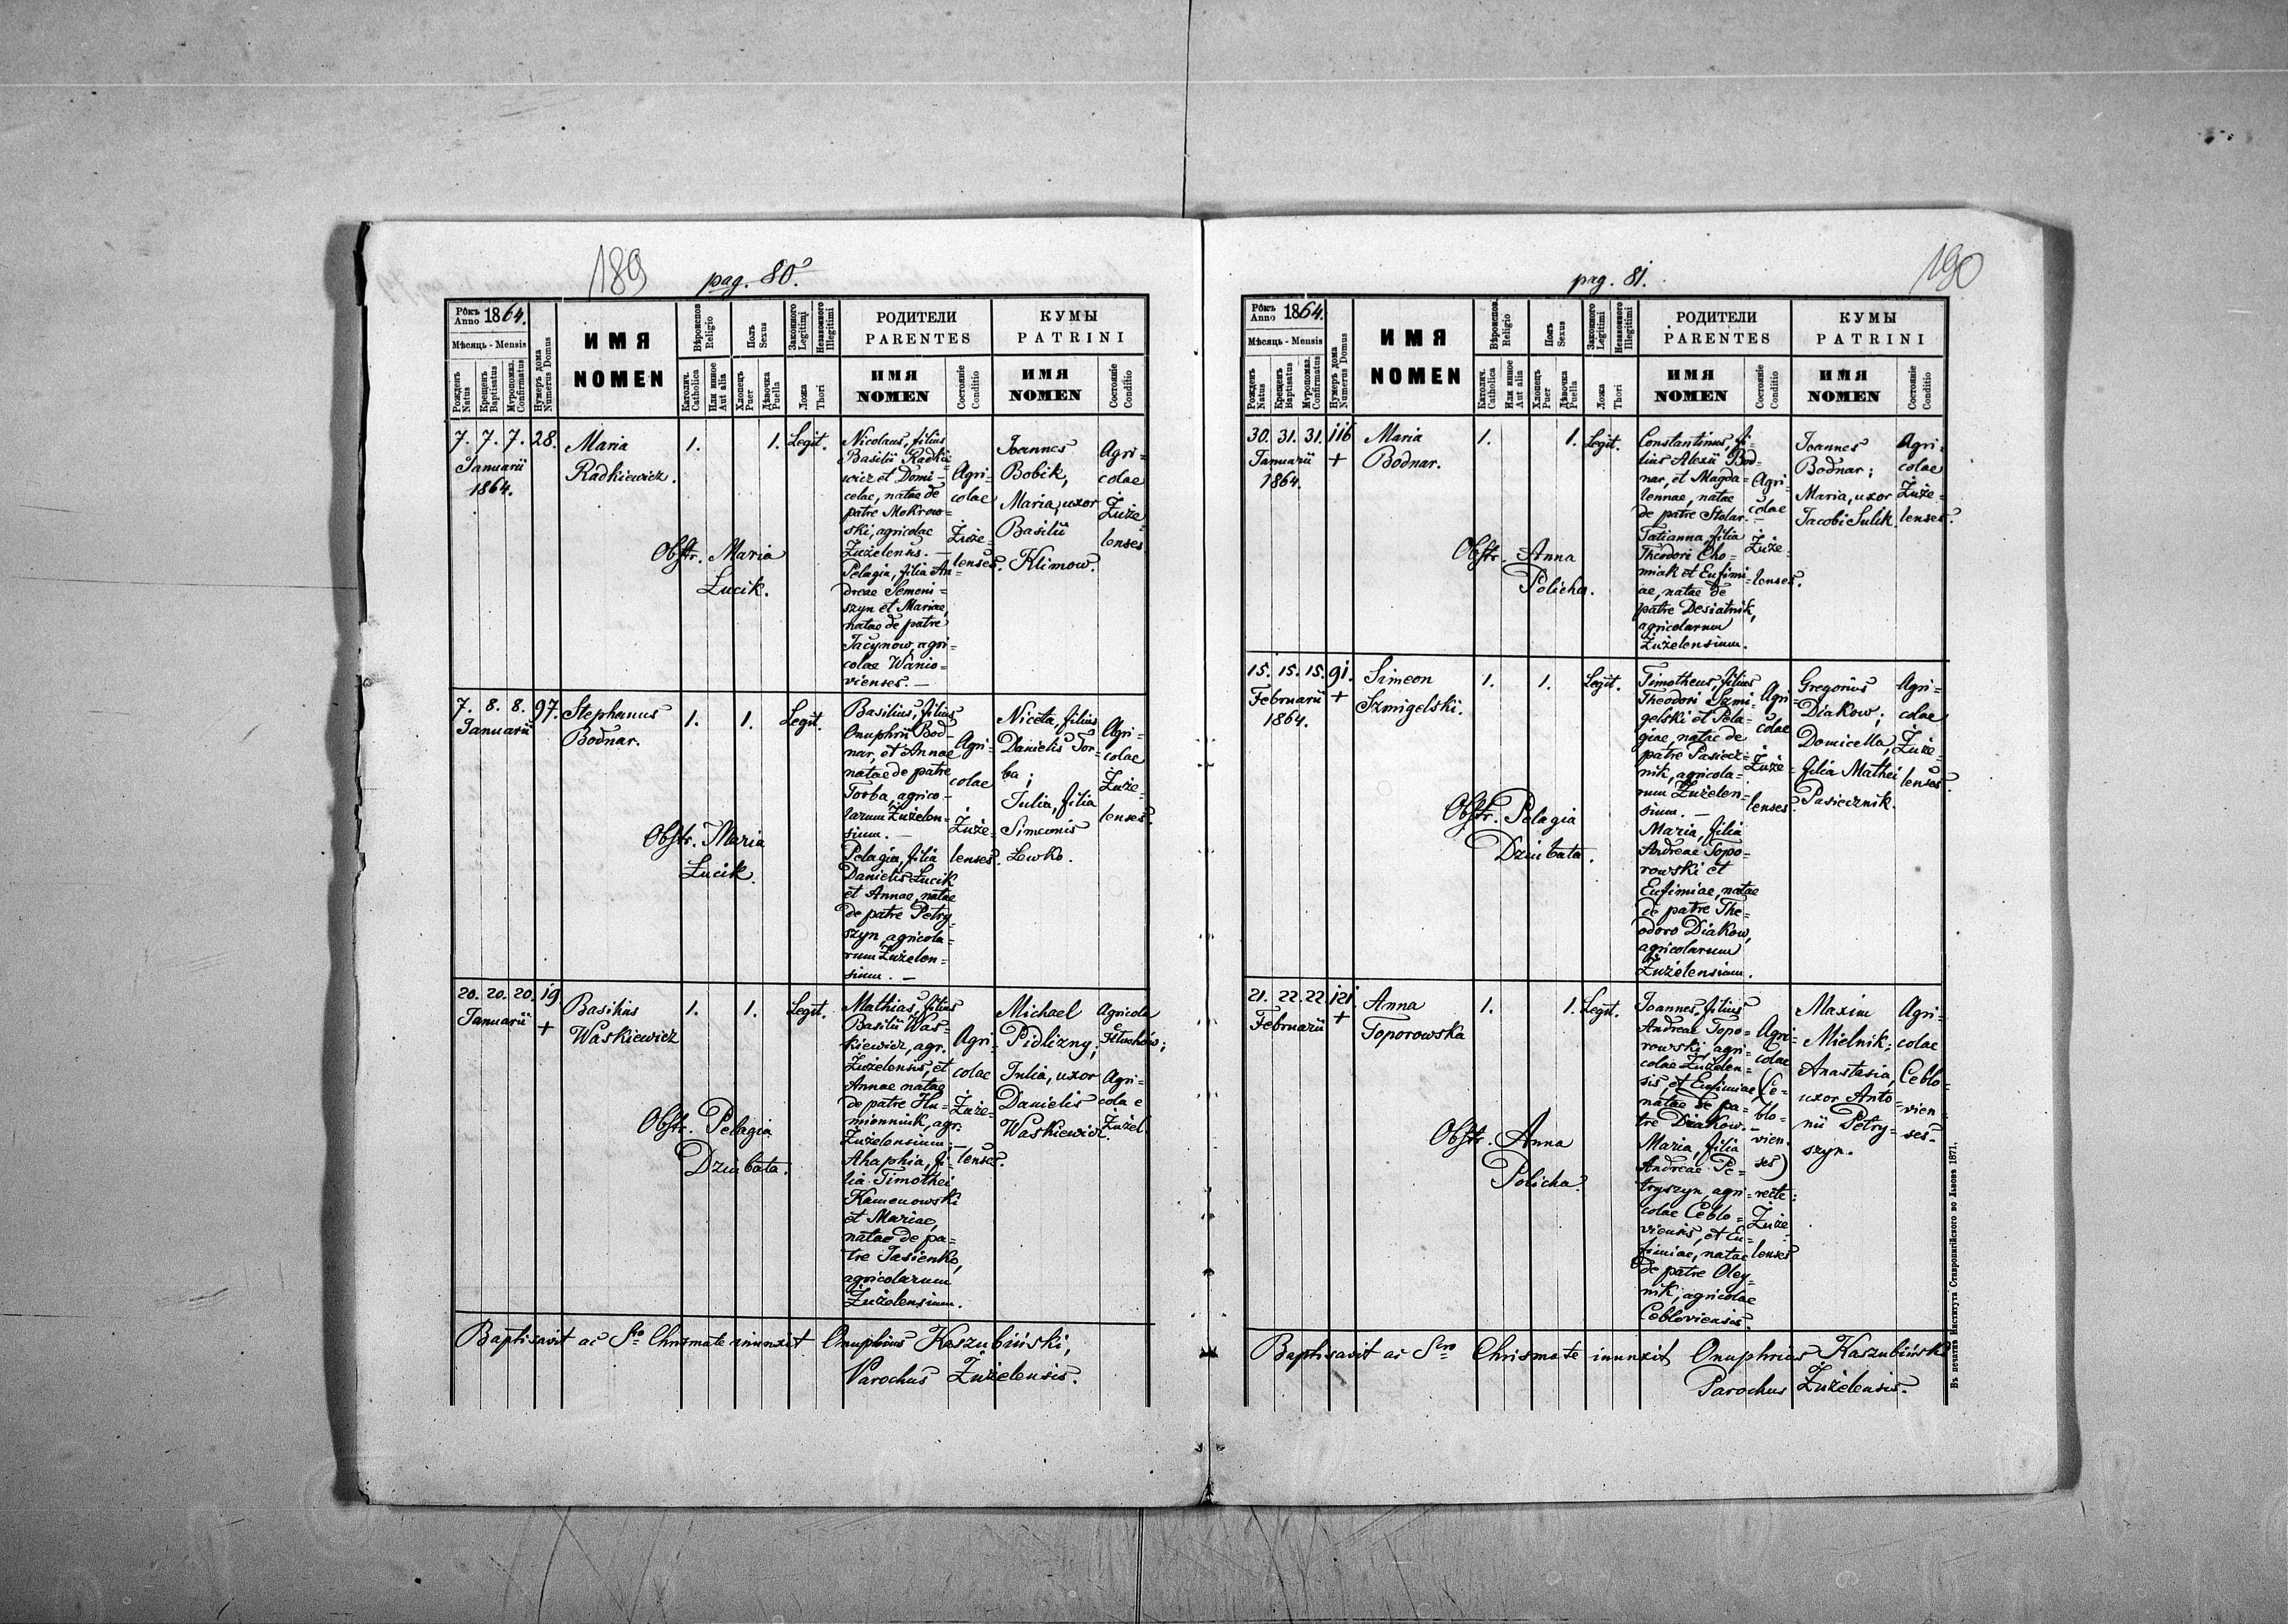 189
pag. 80.
Рôкъ Anno 1864.
Мѣсяць - Mensis
Рожденъ Natus
Крещенъ Baptisatus
Муропомаз. Confirmatus
Нумеръ дома Numerus Domus
ИМЯ
NOMEN
Вѣроиспов. Religio
Католич. Catholica
Или иное Aut alia
Полъ Sexus
Хлопець Puer
Дѣвочка Puella
Законного Legitimi
Незаконного Illegitimi
Ложа Thori
РОДИТЕЛИ
PARENTES
ИМЯ
NOMEN
Состояніе Conditio
КУМЫ
PATRINI
ИМЯ
NOMEN
Состояніе Conditio
7. 7. 7. 28.
Januarii
1864.
Maria
Radkiewicz.
1. 1. Legit.
Obstr. Maria
Łucik.
Nicolaus, filius
Basilii Radkie
wicz et Domi-
celae, natae de
patre Mokrow=
ski, agricolae
Żużelensis. —
Pelagia, filia An=
dreae Semeni=
szyn et Mariae,
natae de patre
Jacynow, agri=
colae Wanio=
vienses. —
Agri=
colae
Żuże=
lenses.
Joannes
Bobik,
Maria, uxor
Basilii
Klimow.
Agri=
colae
Żuże
lenses
7. 8. 8. 97.
Januarii
Stephanus
Bodnar.
1. 1. Legit.
Obstr. Maria
Łucik.
Basilius, filius
Onuphrii Bod=
nar, et Annae
natae de patre
Torba, agrico-
larum Żużelen=
sium. —
Pelagia, filia
Danielis Łucik
et Annae, natae
de patre Petry
szyn, agricola=
rum Żużelen=
sium. —
Agri=
colae
Żuże=
lenses.
Niceta, filius
Danielis Tor=
ba;
Julia, filia
Simeonis
Lewko.
Agri=
colae
Żuże=
lenses.
20. 20. 20. 19
Januarii +
Basilius
Waskiewicz
1. 1. Legit.
Obstr. Pelagia
Dziubata.
Mathias, filius
Basilii Was=
kiewicz, agr.
Żużelensis, et
Annae natae
de patre Hu=
mionniuk, agr.
Żużelensium; —
Ahaphia, fi=
lia Timothei
Kamenowski
et Mariae,
natae de pa=
tre Jasienko,
agricolarum
Żużelensium.
Agri=
colae
Żuże=
lenses.
Michael
Pidlizny;
Julia, uxor
Danielis
Waskiewicz.
Agricola
Agri=
colae
Żużel
Baptisavit ac Sro Chrismate inunxit Onuphrius Kaszubiński,
Parochus Żużelensis.
190
pag. 81.
Рôкъ Anno 1864.
Мѣсяць - Mensis
Рожденъ Natus
Крещенъ Baptisatus
Муропомаз. Confirmatus
Нумеръ дома Numerus Domus
ИМЯ
NOMEN
Вѣроиспов. Religio
Католич. Catholica
Или иное Aut alia
Полъ Sexus
Хлопець Puer
Дѣвочка Puella
Законного Legitimi
Незаконного Illegitimi
Ложа Thori
РОДИТЕЛИ
PARENTES
ИМЯ
NOMEN
Состояніе Conditio
КУМЫ
PATRINI
ИМЯ
NOMEN
Состояніе Conditio
30. 31. 31. 116
Januarii +
1864.
Maria
Bodnar.
1. 1. Legit.
Obstr. Anna
Policha.
Constantinus, fi=
lius Alexii Bod=
nar, et Magda=
lennae, natae
de patre Stolar. —
Tatianna, filia
Theodori Cho=
miak et Eufimi=
ae, natae de
patre Desiatnik,
agricolarum
Żużelensium.
Agri=
colae
Żuże=
lenses.
Joannes
Bodnar;
Maria, uxor
Jacobi Sulik.
Agri=
colae
Żuże=
lenses.
15. 15. 15. 91.
Februarii +
1864.
Simeon
Szmigelski.
1. 1. Legit.
Obstr. Pelagia
Dziubata.
Timotheus, filius
Theodori Szmi=
gelski et Pela=
giae, natae de
patre Pasiecz=
nik, agricola=
rum Żużelen=
sium. —
Maria, filia
Andreae Topo=
rowski et
Eufimiae, natae
de patre The=
odoro Diakow,
agricolarum
Żużelensium.
Agri=
colae
Żuże=
lenses
Gregorius
Diakow;
Domicella,
filia Mathei
Pasiecznik.
Agri=
colae
Żuże=
lenses.
21. 22. 22. 121.
Februarii +
Anna
Toporowska
1. 1. Legit.
Obstr. Anna
Policha.
Joannes, filius
Andreae Topo=
rowski, agri=
colae Żużelen=
sis, et Eufimiae
natae de pa=
tre Diakow. —
Maria, filia
Andreae Pe=
tryszyn, agri=
colae Ceblo=
viensis, et Eu=
fimiae, natae
de patre Oley=
nik, agricolae
Cebloviensis.
Agri=
colae
(Ce=
blo=
vien
ses)
recte:
Żuże
lenses
Maxim
Mielnik;
Anastasia,
uxor Anto=
nii Petry=
szyn.
Agri=
colae
Ceblo=
vien=
ses.
Baptisavit ac Scro Chrismate inunxit Onuphrius Kaszubiński
Parochus Żużelensis.
Въ печатнѣ Института Ставропигійского во Львовѣ 1871.